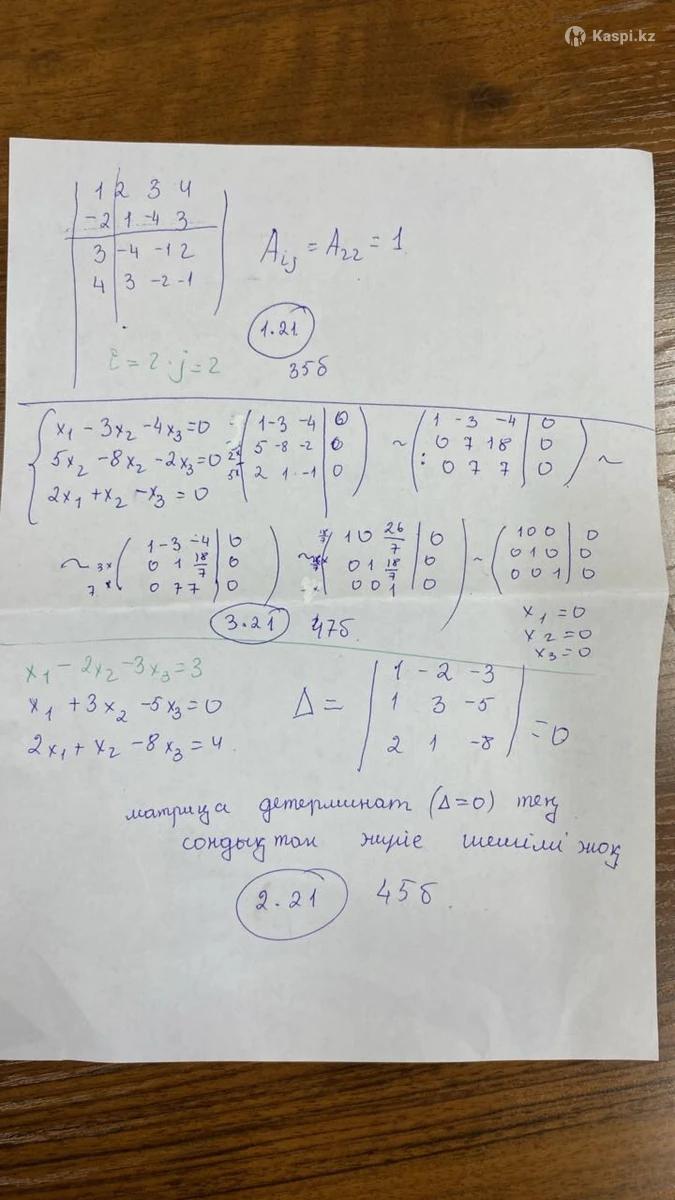 Kaspi.kz
1 2 3 4
-2 1 -4 3
3 -4 -1 2
4 3 -2 -1
A_ij = A_22 = 1
1.21
i = 2 . j = 2
35б
x₁ - 3x₂ - 4x₃ = 0
5x₂ - 8x₂ - 2x₃ = 0
2x₁ + x₂ - x₃ = 0
1 -3 -4 | 0
5 -8 -2 | 0
2 1 -1 | 0
~
1 -3 -4 | 0
0 7 18 | 0
0 7 7 | 0
~
~ 3x
7x
1 -3 -4 | 0
0 1 18/7 | 0
0 7 7 | 0
~
1 0 26/7 | 0
0 1 18/7 | 0
0 0 1 | 0
~
1 0 0 | 0
0 1 0 | 0
0 0 1 | 0
x₁ = 0
x₂ = 0
x₃ = 0
3.21
47б
x₁ - 2x₂ - 3x₃ = 3
x₁ + 3x₂ - 5x₃ = 0
2x₁ + x₂ - 8x₃ = 4
Δ =
1 -2 -3
1 3 -5
2 1 -8
= 0
матрица детерминат (Δ=0) тең
сондықтан жүйе шешімі жоқ
2.21
45б